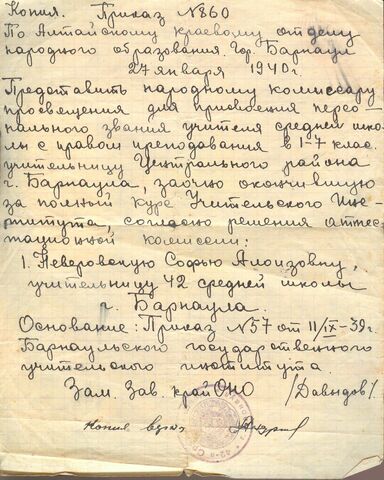 Копия. Приказ №860
По Алтайскому краевому отделу
народного образования. Гор. Барнаул
27 января 1940 г.
Представить народному комиссару
просвещения для присвоения персо-
нального звания учителя средней шко-
лы с правом преподавания в 1-7 клас.
учительницу Центрального района
г. Барнаула, заочно окончившую
за полный курс Учительского Инс-
титута, согласно решения аттес-
тационной комиссии:
1. Неверовскую Софью Алоизовну,
учительницу 42 средней школы
г. Барнаула.
Основание: Приказ №57 от 11/IX-39г.
Барнаульского государственного
учительского института.
Зам. Зав. край ОНО /Давыдов/.
Копия верна